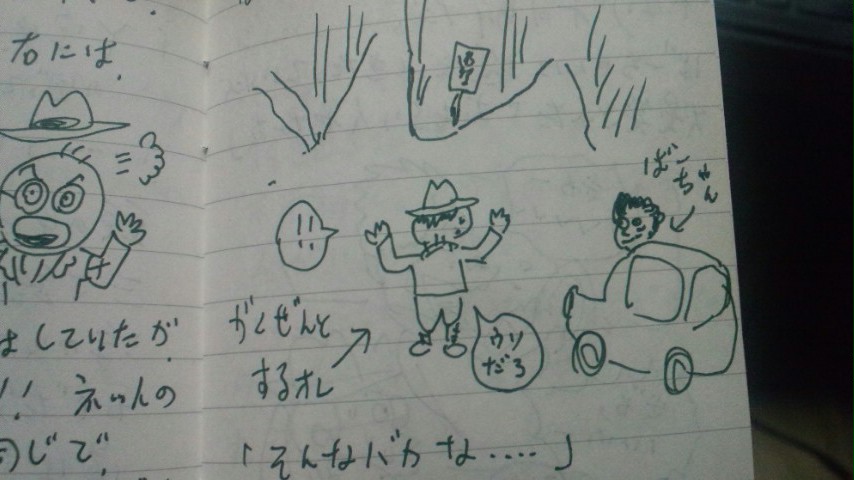 右には、
はしていたが
!!
じで、
ばーちゃん
!!
がくぜんと
するオレ
ウソ
だろ
「そんなバカな....」